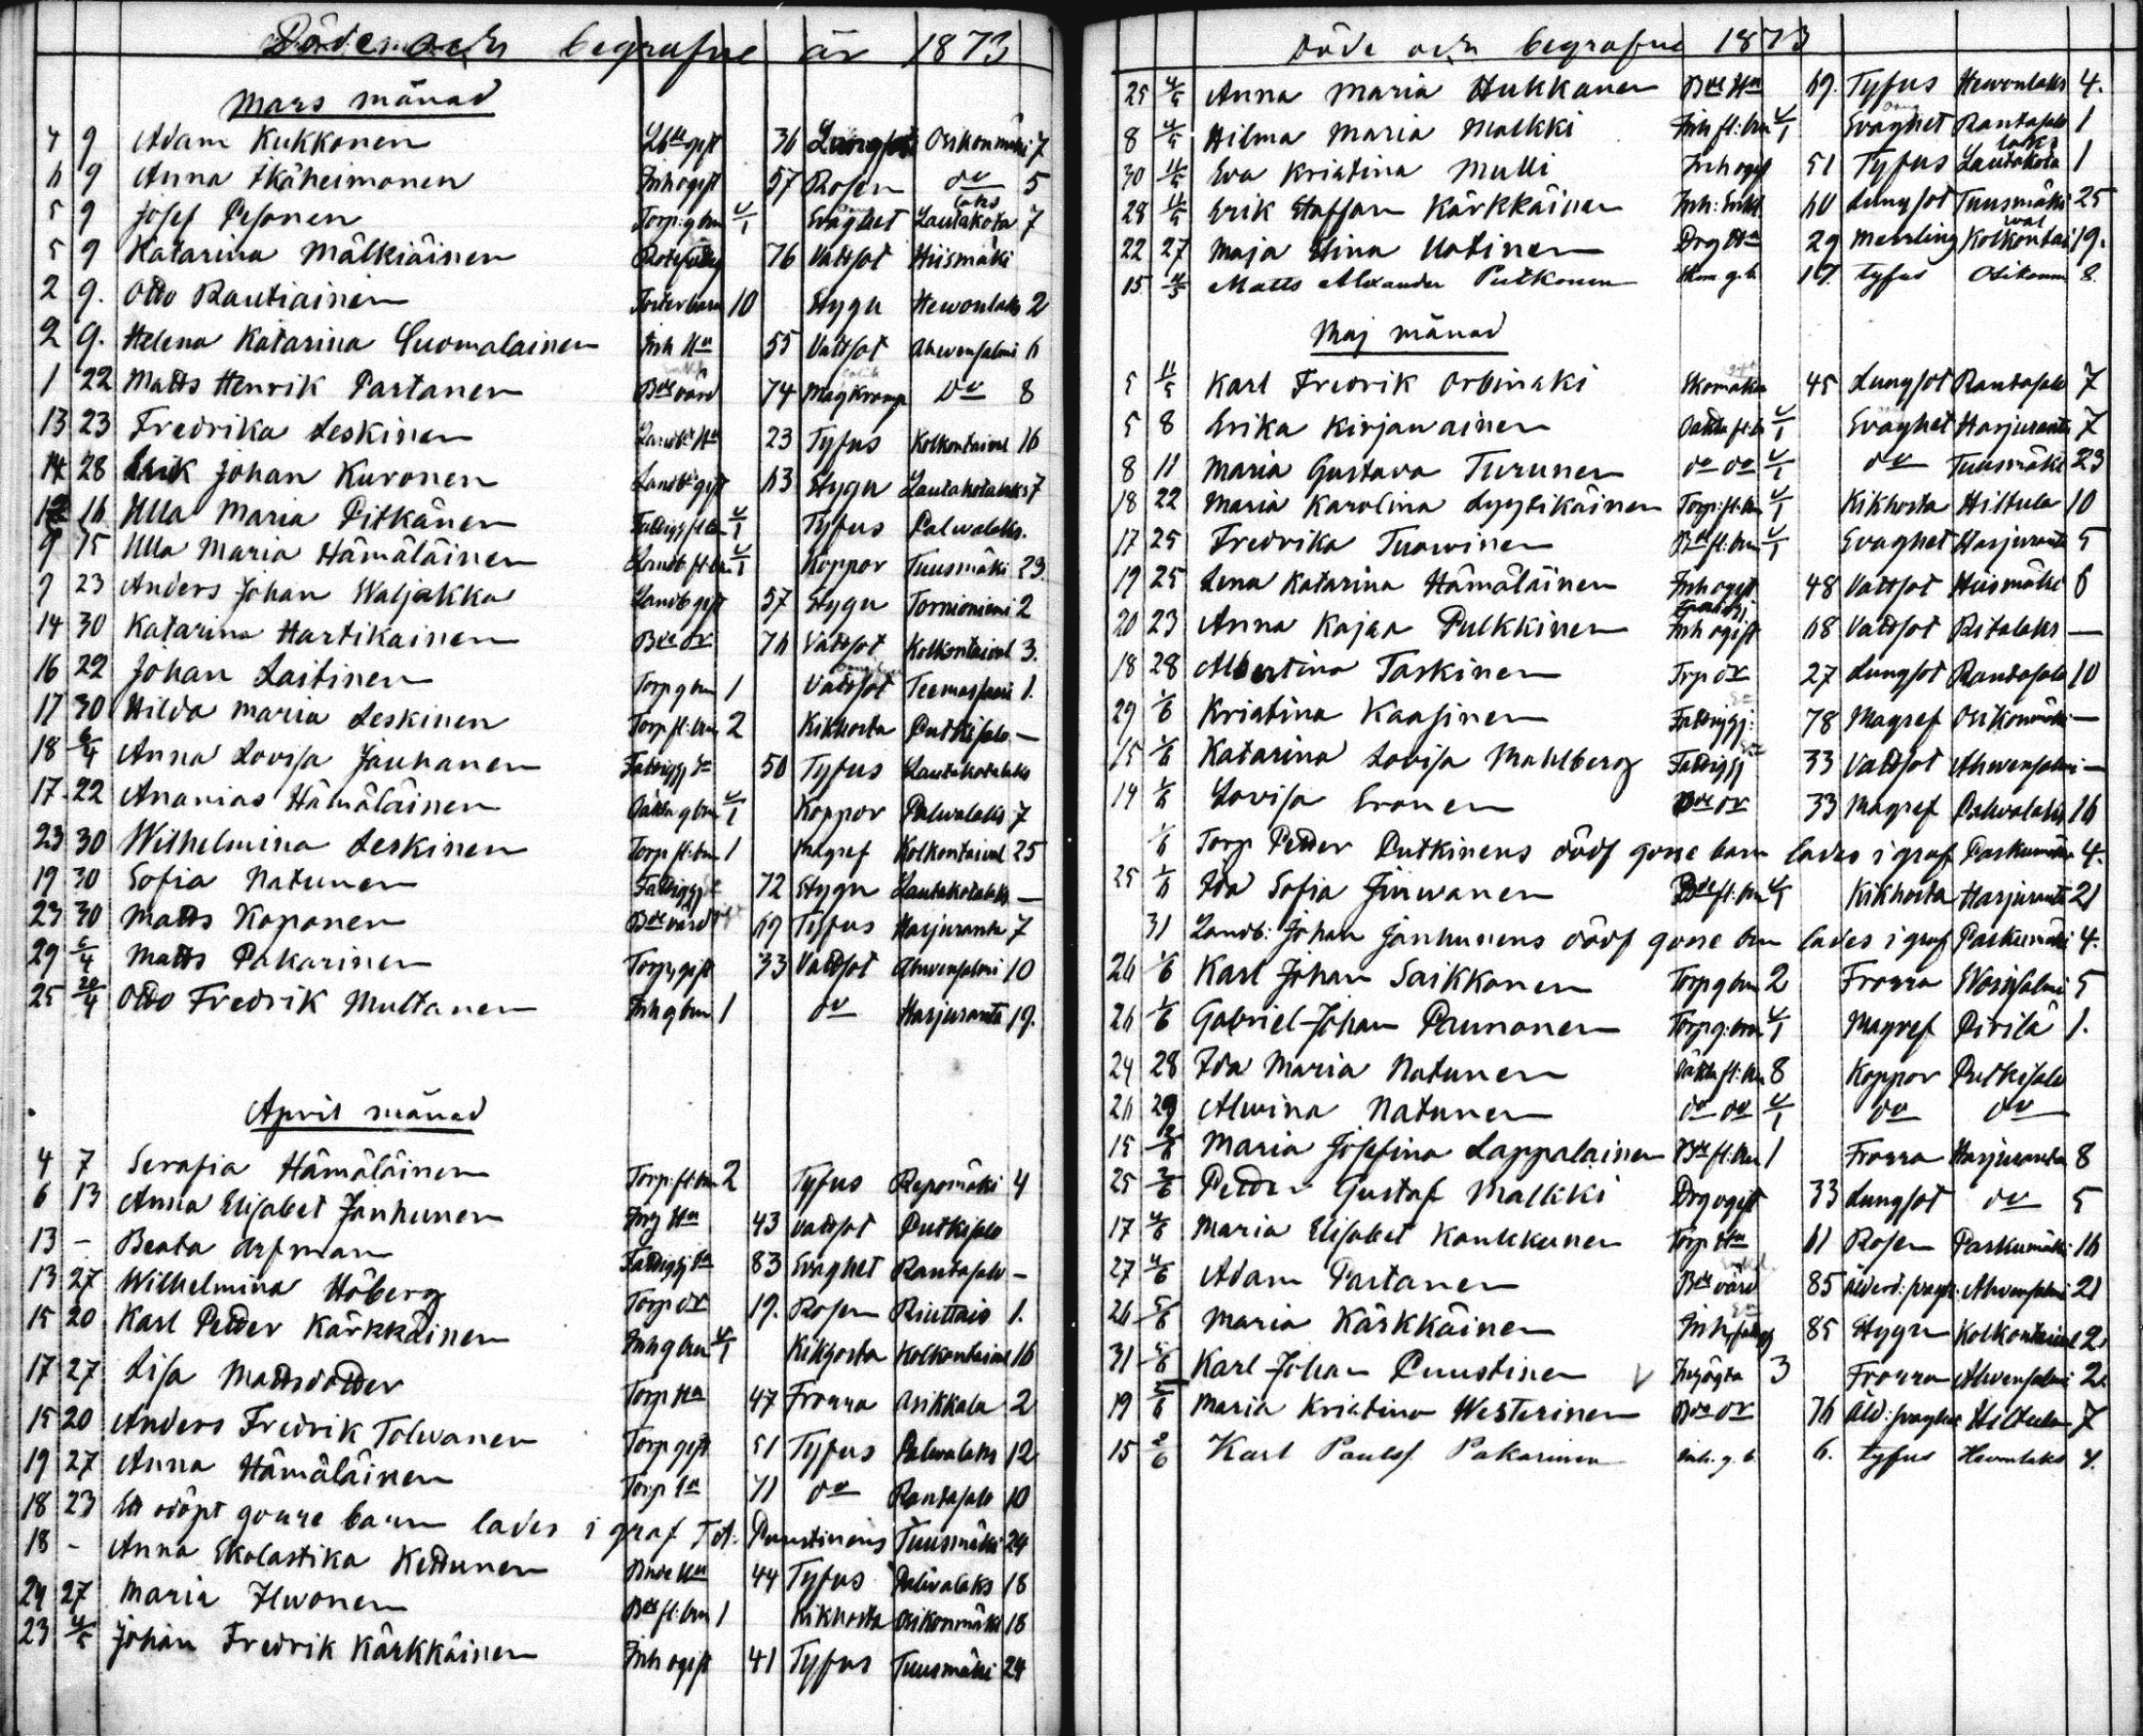 Döde och begrafne år 1873
Mars månad
4 9 Adam Kukkonen gift 36 Lungsot Osikonmäki 7
6 9 Anna Ikäheimonen Inh ogift 57 Rosen do 5
5 9 Josef Pesonen Torp: g brn u/1 Svaghet Lautakotalaks 7
5 9 Katarina Mälkiäinen 76 Vattsot Hiismäki
2 9. Otto Rautiainen Fosterbarn 10 Stygn Hewonlaks 2
2 9. Helena Katarina Suomalainen Inh Hu 55 Vattsot Ahvensalmi 6
1 22 Matts Henrik Partanen Bde värd 74 Magkramp Do 8
13 23 Fredrika Leskinen Landb: Hu 23 Tyfus Kolkontaival 16
14 28 Erik Johan Kuronen Landb: gift 63 Stygn Lautakotalaks 7
12 16 Ulla Maria Pitkänen Fattigj fl bn u/1 Tyfus Palvalaks.
9 15 Ulla Maria Hämäläinen Landb. fl: bn u/1 Koppor Tuusmäki 23
9 23 Anders Johan Waljakka Landb gift 57 Stygn Tornioniemi 2
14 30 Katarina Hartikainen Bde dr 76 Vattsot Kolkontaival 3.
16 22 Johan Laitinen Torp g brn 1 Vattsot 1.
17 30 Hilda Maria Leskinen Torp. fl: brn 2 Kikhosta Putkisalo —
18 6/4 Anna Lovisa Jauhanen Fattigj 50 Tyfus Lautakotalaks
17. 22 Ananias Hämäläinen g brn u/1 Koppor Palvalaks 7
23 30 Wilhelmina Leskinen Torp fl: brn 1 Magref Kolkontaival 25
19 30 Sofia Natunen Fattigj 72 Stygn Lautakotalaks —
23 30 Matts Koponen Bde värd 69 Tyfus Harjuranta 7
29 6/4 Matts Pakarinen Torp gift 33 Vattsot Ahvensalmi 10
25 20/4 Otto Fredrik Multanen Inh g brn 1 do Harjuranta 19.
April månad
4 7 Serafia Hämäläinen Torp: fl: brn 2 Tyfus Repomäki 4
6 13 Anna Elisabet Jänhunen Torp Hu 43 Vattsot Putkisalo
13 - Beata Arfman Fattigj 83 Svaghet Rantasalo —
13 27 Wilhelmina Höberg Torp dr 19. Rosen 1.
15 20 Karl Petter Kärkkäinen Inh g brn u/1 Kikhosta Kolkontaival 16
17 27 Lisa Mattsdotter Torp Hu 47 Frossa Asikkala 2
15 20 Anders Fredrik Tolvanen Torp gift 51 Tyfus Palvalaks 12
19 27 Anna Hämäläinen Torp 71 do Rantasalo 10
18 23 Ett odöpt gosse barn lades i graf Puustinens Tuusmäki 24
18 - Anna Skolastika Kettunen Bonde Hu 44 Tyfus Palvalaks 18
24 27 Maria Ilvonen Bde fl: brn 1 Kikhosta Osikonmäki 18
23 4/5 Johan Fredrik Kärkkäinen Inh ogift 41 Tyfus Tuusmäki 24
Döde och begrafne 1873
25 4/5 Anna Maria Hukkanen Bde Hu 69. Tyfus Hewonlaks 4.
8 4/5 Hilma Maria Malkki Inh fl: brn u/1 Svaghet Rantasalo 1
30 11/5 Eva Kristina Mulli Inh ogift 51 Tyfus Lautakotalaks 1
28 11/5 Erik Staffan Kärkkäinen Inh: 60 Lungsot Tuusmäki 25
22 27 Maja Stina Uotinen Drg Hu 29 Messling Kolkontaival 19.
15 4/5 Matts Alexander Putkonen 17. tyfus Osikonm 8.
Maj månad
5 11/5 Karl Fredrik Orbinski Skomakar gift 45 Lungsot Rantasalo 7
5 8 Erika Kirjavainen fl: brn u/1 Svaghet Harjuranta 7
8 11 Maria Gustava Turunen do do u/1 do Tuusmäki 23
18 22 Maria Karolina Lyytikäinen Torp: fl: brn u/1 Kikhosta Hiltula 10
17 25 Fredrika Tuovinen Bde fl: brn u/1 Svaghet Harjuranta 5
19 25 Lena Katarina Hämäläinen Inh ogift 48 Vattsot Hiismäki 6
20 23 Anna Kajsa Pulkkinen Inh ogift 68 Vattsot Ritalaks —
18 28 Albertina Taskinen Trp dr 27 Lungsot Rantasalo 10
29 1/6 Kristina Kaasinen Fattigj: 78 Magref Osikonmäki —
15 1/6 Katarina Lovisa Mahlberg Fattigj 33 Vattsot Ahvensalmi —
19 1/6 Lovisa Eronen Bde dr 33 Magref Palvalaks 16
1/6 Torp Petter Putkinens dödf gosse barn lades i graf Paskumäki 4.
25 1/6 Ida Sofia Jinvanen Bde fl: brn u/1 Kikhosta Harjuranta 21
31 Landb: Johan Jänhunens dödf gosse brn lades i graf Paskumäki 4.
26 1/6 Karl Johan Saikkonen Torp g brn 2 Frossa 5
26 1/6 Gabriel Johan Paunonen Torp g: brn u/1 Magref Pirilä 1.
24 28 Ida Maria Natunen fl: brn 8 Koppor Putkisalo
26 29 Alvina Natunen do do u/1 do do
15 2/6 Maria Josefina Lappalainen Bde fl: brn 1 Frossa Harjuranta 8
25 2/6 Petter Gustaf Malkki Drg ogift 33 Lungsot do 5
17 4/6 Maria Elisabet Kaukkunen Torp Hu 61 Rosen Paskumäki 16
27 4/6 Adam Partanen Bde värd 85 Ålderd: svagh: Ahvensalmi 21
26 5/6 Maria Kärkkäinen Inh 85 Stygn Kolkontaival 2.
31 5/6 Karl Johan Puustinen V 3 Frossa Ahvensalmi 2.
19 2/6 Maria Kristina Westerinen Bde dr 76 Åld: svaghet Hiltula 7
15 2/6 Karl Paulsf Pakarinen inh. g. b. 6. tyfus Hevonlaks 4.